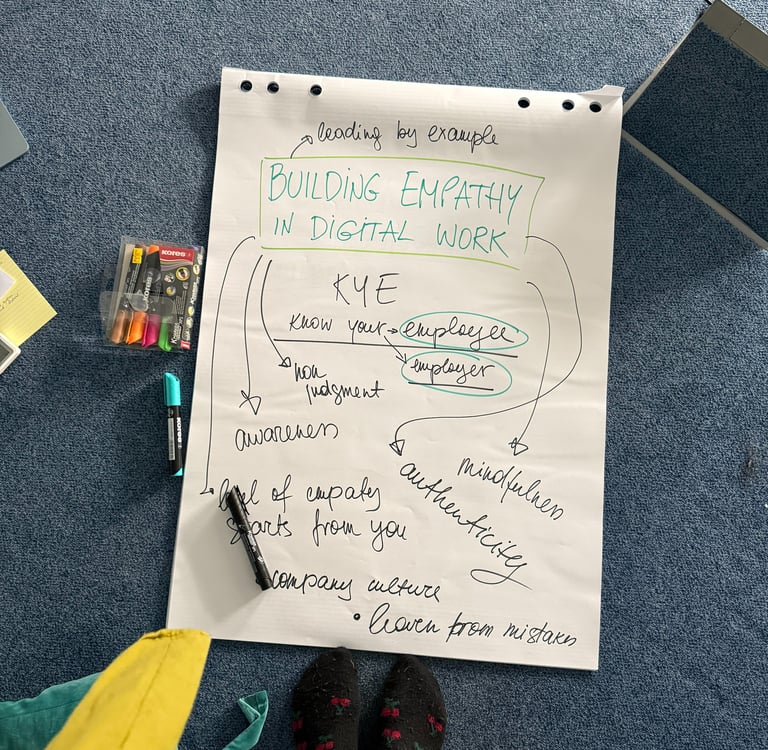 leading by example
BUILDING EMPATHY
IN DIGITAL WORK
KYE
Know your employee
employer
non
judgment
awareness
mindfulness
authenticity
level of empaty
starts from you
company culture
• learn from mistakes
KORES
KORES
KORES